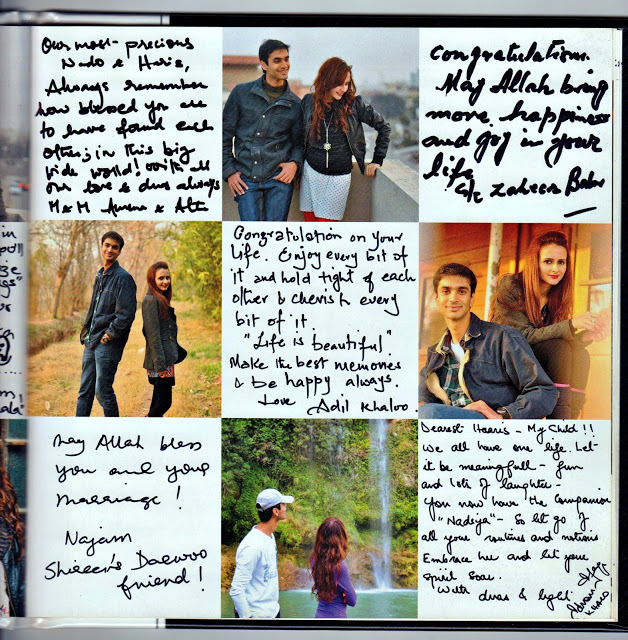 Our most precious
Nado & Haris,
Always remember
how blessed you are
to have found each
other, in this big
wide world! With all
our love & duas always
M & M
Congratulations.
May Allah bring
more happiness
and joy in your
life
Zaheer Babar
Congratulation on your
life. Enjoy every bit of
it and hold tight of each
other & cherish every
bit of it
"Life is beautiful"
Make the best memories
& be happy always.
Love Adil Khaloo.
May Allah bless
you and your
marriage!
Najam
Sheeer's Daewoo
friend!
Dearest Haaris - My Child!!
We all have one life. Let
it be meaningfull - fun
and lots of laughter -
You now have the Companion
"Nadiya" - So let go of
all your routines and notions
Embrace her and let your
spirit soar.
With duas & light